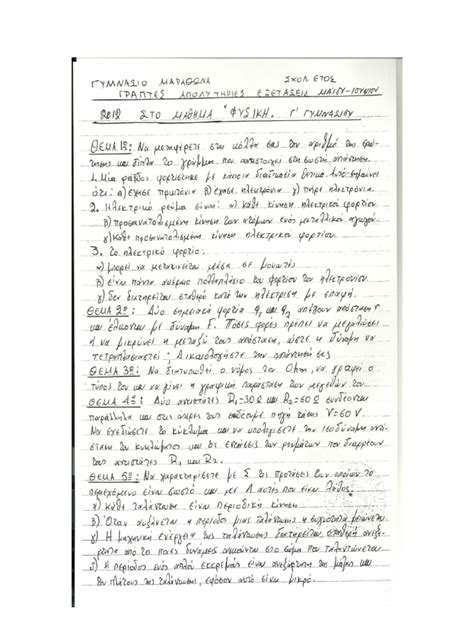 ΓΥΜΝΑΣΙΟ ΜΑΡΑΘΩΝΑ ΣΧΟΛ. ΕΤΟΣ
ΓΡΑΠΤΕΣ ΑΠΟΛΥΤΗΡΙΕΣ ΕΞΕΤΑΣΕΙΣ ΜΑΙΟΥ-ΙΟΥΝΙΟΥ
2012 ΣΤΟ ΜΑΘΗΜΑ "ΦΥΣΙΚΗ" Γ' ΓΥΜΝΑΣΙΟΥ
ΘΕΜΑ 1ο: Να μεταφέρετε στη κόλλα σας τον αριθμό της ερώ-
τησης και δίπλα το γράμμα που αντιστοιχεί στη σωστή απάντηση.
1. Μία ράβδος φορτίστηκε με κάποια διαδικασία θετικά. Αυτό σημαίνει
ότι: α) έχασε πρωτόνια β) έχασε ηλεκτρόνια γ) πήρε ηλεκτρόνια.
2. Ηλεκτρικό ρεύμα είναι: α) κάθε κίνηση ηλεκτρικού φορτίου
β) προσανατολισμένη κίνηση των ατόμων ενός μεταλλικού αγωγού.
γ) Κάθε προσανατολισμένη κίνηση ηλεκτρικού φορτίου.
3. Το ηλεκτρικό φορτίο:
α) μπορεί να μετακινείται μέσα σε μονωτές
β) είναι πάντα ακέραιο πολλαπλάσιο του φορτίου του ηλεκτρονίου.
γ) δεν διατηρείται σταθερό κατά την ηλέκτριση με επαφή.
ΘΕΜΑ 2ο: Δύο σημειακά φορτία q1 και q2 απέχουν απόσταση r
και έλκονται με δύναμη F. Πόσες φορές πρέπει να μεγαλώσει
ή να μικρύνει η μεταξύ τους απόσταση, ώστε η δύναμη να
τετραπλασιαστεί; Δικαιολογήστε την απάντησή σας
ΘΕΜΑ 3ο: Να διατυπωθεί ο νόμος του Ohm, να γραφεί ο
τύπος του και να γίνει η γραφική παράσταση των μεγεθών του.
ΘΕΜΑ 4ο: Δύο αντιστάτες R1=30Ω και R2=60Ω συνδέονται
παράλληλα και στις άκρες τους συνδέουμε πηγή τάσης V=60 V.
Να σχεδιάσετε το κύκλωμα και να υπολογίσετε την ισοδύναμη αντί-
σταση του κυκλώματος και τις εντάσεις των ρευμάτων που διαρρέουν
τους αντιστάτες R1 και R2.
ΘΕΜΑ 5ο: Να χαρακτηρίσετε με Σ τις προτάσεις των οποίων το
περιεχόμενο είναι σωστό και με Λ αυτές που είναι λάθος:
α) κάθε ταλάντωση είναι περιοδική κίνηση
β) Όταν αυξάνεται η περίοδος μιας ταλάντωσης η συχνότητα μειώνεται.
γ) Η μηχανική ενέργεια της ταλάντωσης διατηρείται σταθερή ανεξάρ-
τητα από το ποιες δυνάμεις ασκούνται στο σώμα που ταλαντώνεται.
δ) Η περίοδος ενός απλού εκκρεμούς είναι ανεξάρτητη της μάζας και
του πλάτους της ταλάντωσης, εφόσον αυτό είναι μικρό.